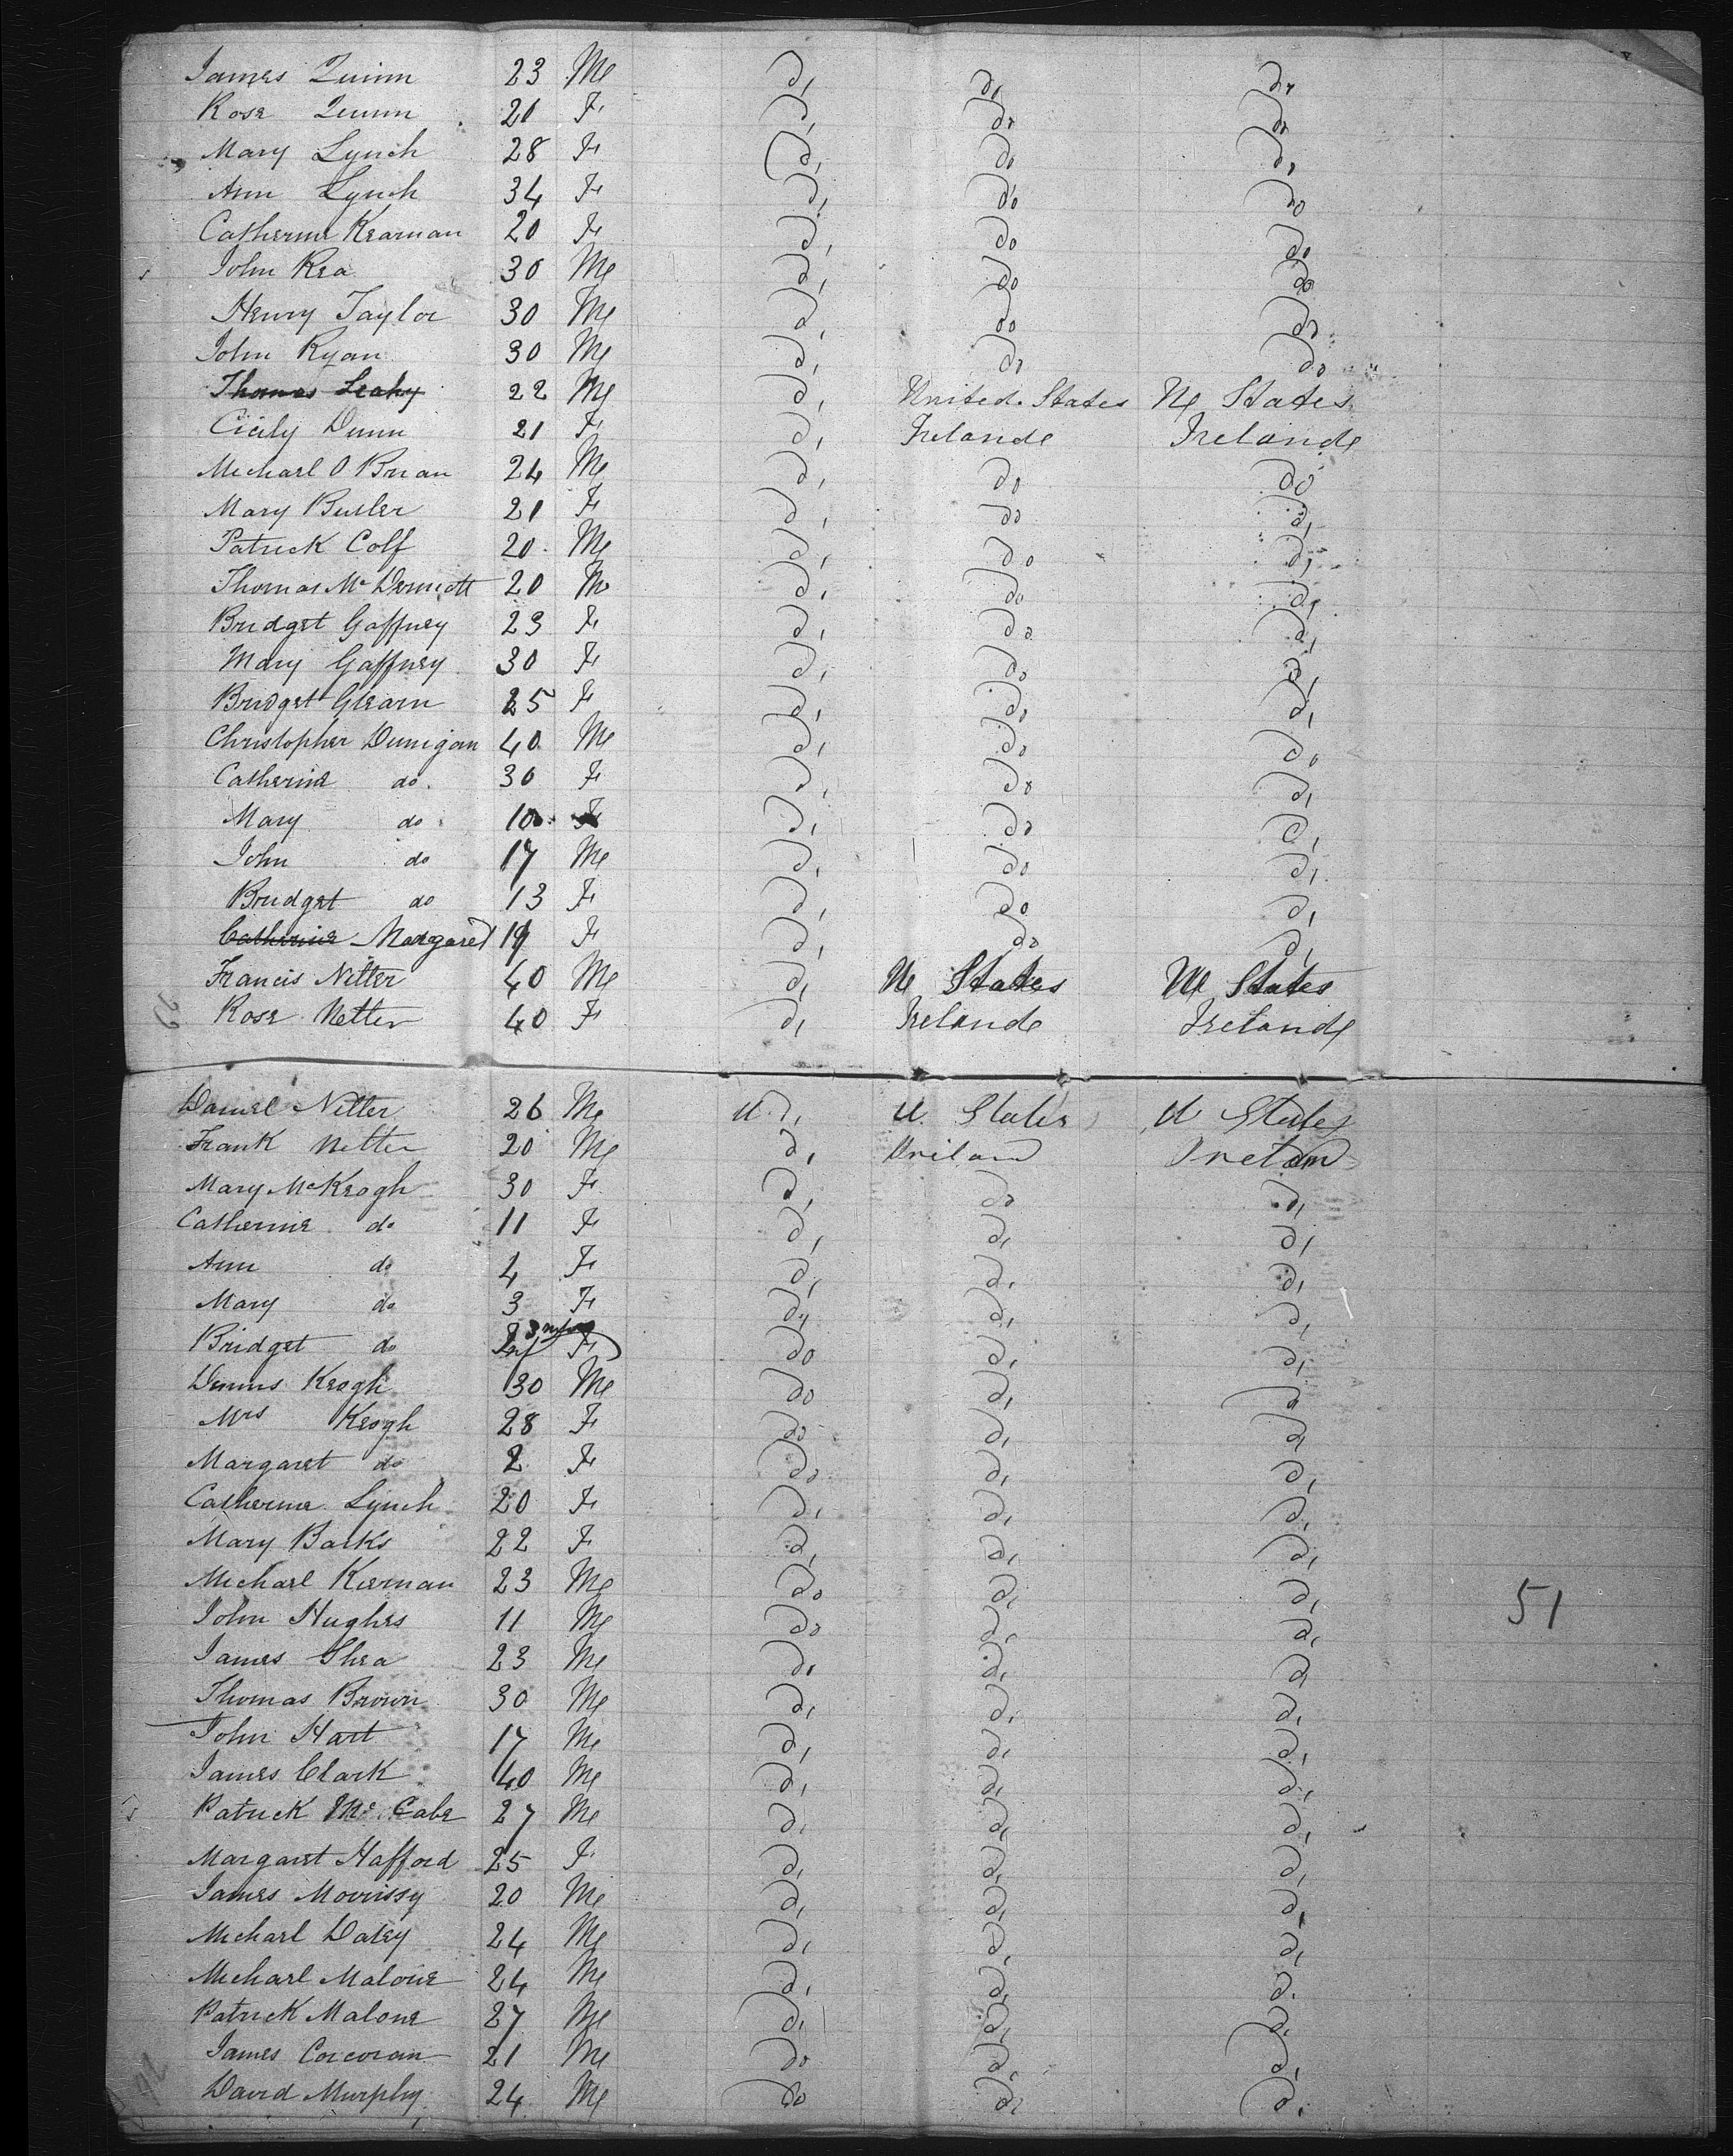 James Quinn 23 M d, do do
Rose Quinn 20 F d, do do
Mary Lynch 28 F d, do do
Ann Lynch 34 F d, do do
Catherine Kearnan 20 F d, do do
John Rea 30 M d, do do
Henry Taylor 30 M d, do do
John Ryan 30 M d, do do
Thomas Leahy 22 M d, United States U States
Cicily Dunn 21 F d, Irelande Irelande
Michael O Brian 24 M d, do do
Mary Butler 21 F d, do d,
Patrick Colf 20 M d, do d,
Thomas Mc Dermott 20 M d, do d,
Bridget Gaffney 23 F d, do d,
Mary Gaffney 30 F d, do d,
Bridget Glearn 25 F d, do d,
Christopher Dunigan 40 M d, do do
Catherine do 30 F d, do d,
Mary do 10 F d, do d,
John do 17 M d, do d,
Bridget do 13 F d, do d,
Catherine Margaret 19 F d, do d,
Francis Netter 40 M d, U States U States
Rose Netter 40 F d, Irelande Irelande
Daniel Netter 26 M U d, U States U States
Frank Netter 20 M d,
Mary McKeogh 30 F d, do d,
Catherine do 11 F d, d, d,
Ann do 4 F d, d, d,
Mary do 3 F d, d, d,
Bridget do Inf F do d, d,
Dennis Keogh 30 M do d, d,
Mrs Keogh 28 F do d, d,
Margaret do 2 F do d, d,
Catherine Lynch 20 F d, d, d,
Mary Barks 22 F d, d, d,
Michael Kiernan 23 M do d, d,
51
John Hughes 11 M do d, d,
James Shea 23 M d, d, d,
Thomas Brown 30 M d, d, d,
John Hart 17 M d, d, d,
James Clark 40 M d, d, d,
Patrick Mc Cabe 27 M d, d, d,
Margaret Hafford 25 F d, d, d,
James Morrissy 20 M d, d, d,
Michael Daley 24 M d, d, d,
Michael Malone 24 M d, d, d,
Patrick Malone 27 M d, d, d,
James Corcoran 21 M do d, d,
David Murphy 24 M do d, d,